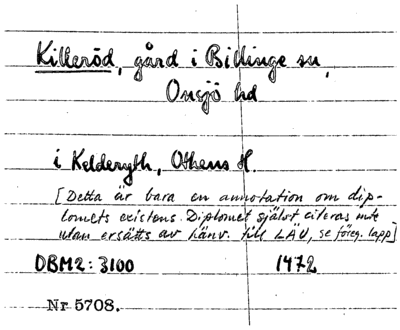 Killeröd, gård i Billinge sn,
Onsjö hd
i Kelderydh, Othens H.
[Detta är bara en annotation om dip-
lomets existens. Diplomet självt citeras inte
utan ersätts av hänv. till LÄU, se föreg. lapp]
DBM2: 3100 1472
Nr 5708.